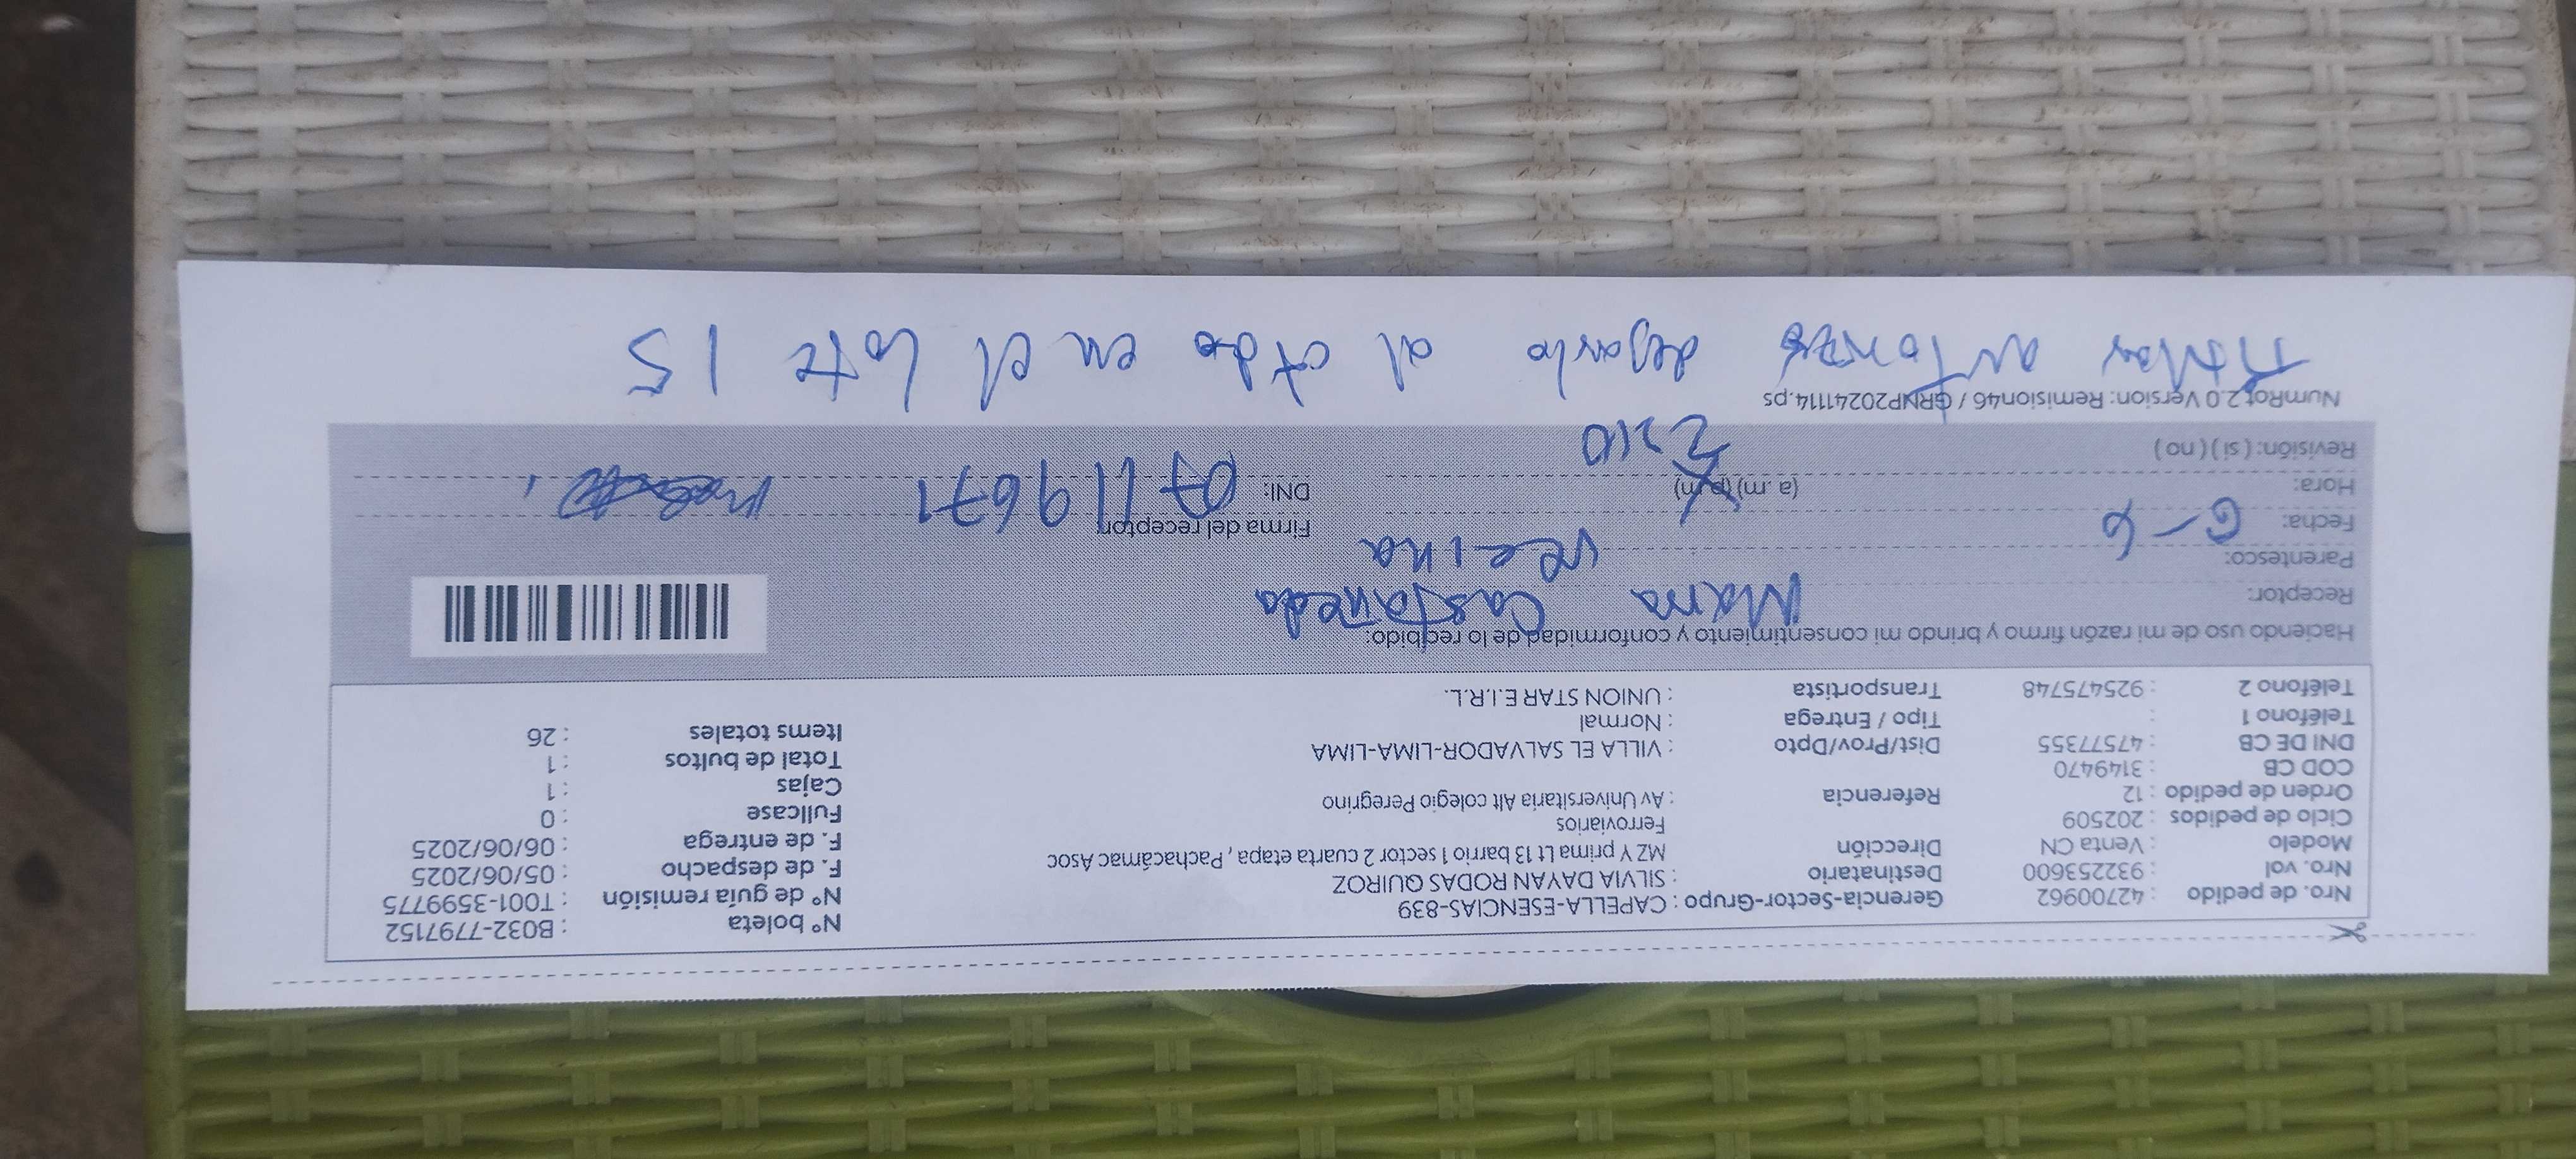 Nro. de pedido : 42700962 Gerencia-Sector-Grupo : CAPELLA-ESENCIAS-839 N° boleta : B032-7797152
Nro. vol : 932253600 Destinatario : SILVIA DAYAN RODAS QUIROZ N° de guía remisión : T001-3599775
Modelo : Venta CN Dirección MZ Y prima Lt 13 barrio 1 sector 2 cuarta etapa , Pachacámac Asoc F. de despacho : 05/06/2025
Ferroviarios
Ciclo de pedidos : 202509 F. de entrega : 06/06/2025
Orden de pedido : 12 Referencia : Av Universitaria Alt colegio Peregrino Fullcase : 0
COD CB : 3149470 Cajas : 1
DNI DE CB : 47577355 Dist/Prov/Dpto : VILLA EL SALVADOR-LIMA-LIMA Total de bultos : 1
Teléfono 1 : Tipo / Entrega : Normal Items totales : 26
Teléfono 2 : 925475748 Transportista : UNION STAR E.I.R.L.
Haciendo uso de mi razón firmo y brindo mi consentimiento y conformidad de lo recibido:
Receptor: Maria Castañeda
Parentesco: vecina
Fecha: 6-6 Firma del receptor:
Hora: (a.m) (p.m) DNI: 07119671
Revisión: ( si ) ( no ) 2:10
NumRot 2.0 Version: Remision46 / GRNP20241114.ps
Titular autoriza dejarlo al ctdo en el lote 15